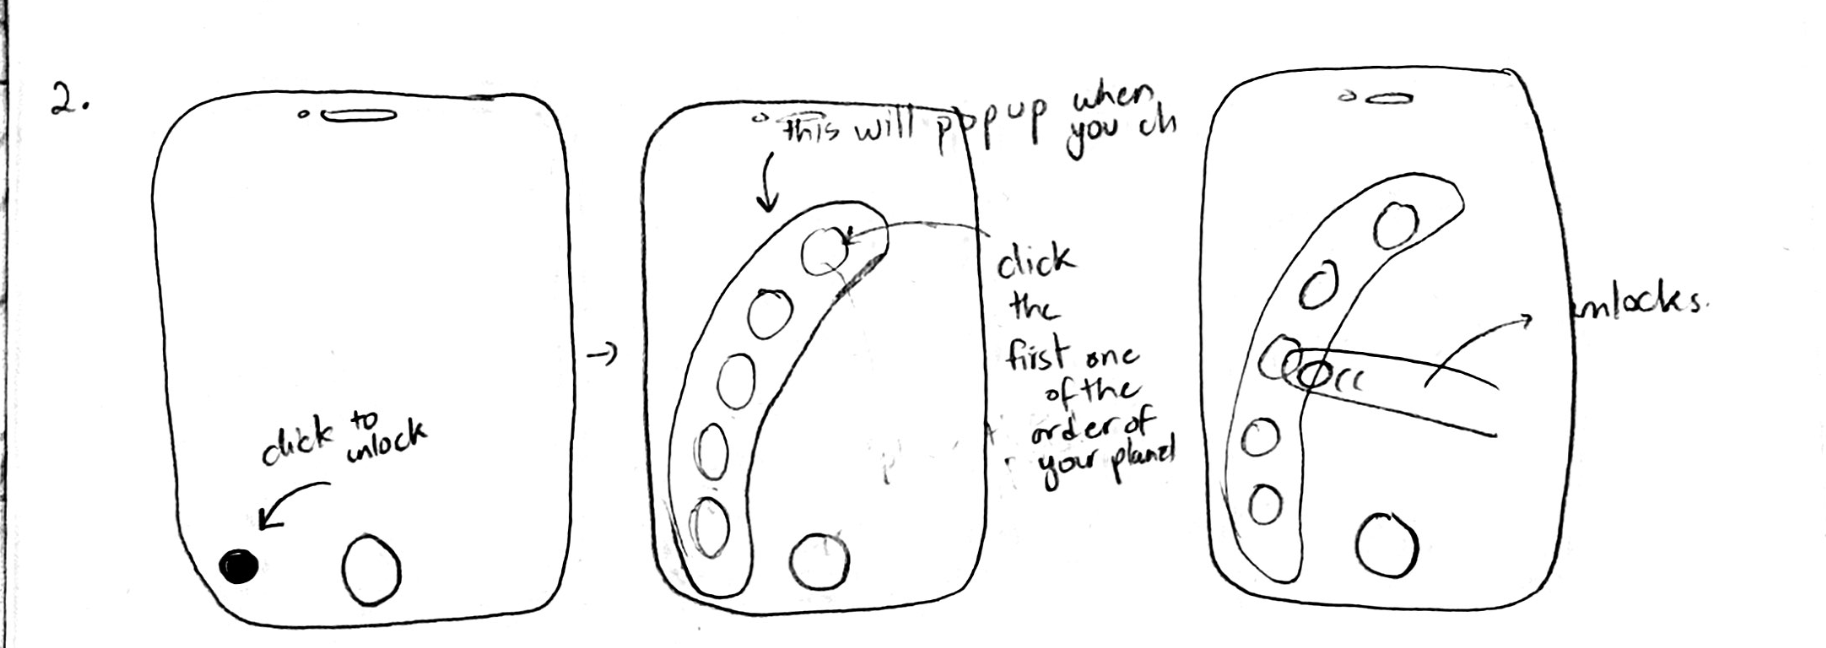 2.
click to
unlock
this will popup when
you ch
click
the
first one
of the
order of
your planet
unlocks.